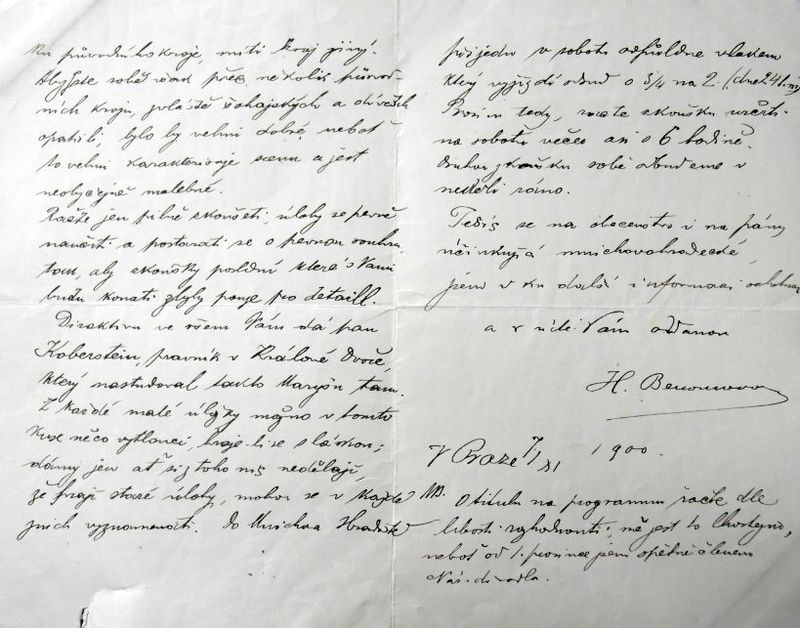 ku původního kroje, míti kraj jiný.
Abyste sobě však přec několik původ-
ních krojů, zvláště šohajských a děveček
opatřili, bylo by velmi dobré, neboť
to velmi karakterisuje scenu a jest
neobyčejně malebné.
Račte jen pilně zkoušeti úlohy se pevně
naučiti a postarati se o pevnou souhru
tak, aby zkoušky poslední které s Vámi
budu konati zbyly pouze pro detaill.
Direktivu ve všem Vám dá pan
Koberstein, právník v Králové Dvoře,
který nastudoval takto Maryšu tam.
Z každé malé úložky možno v tomto
kuse něco vytlouci, hraje-li se s láskou;
dámy jen ať si z toho nic nedělají,
že hrají staré úlohy, mohou se v každé
jiných vyznamenati. Do Mnichova Hradiště
přijedu v sobotu odpůldne vlakem
který vyjíždí odsud o 3/4 na 2 (dne 24/
Prosím tedy, račte zkoušku určiti
na sobotu večer asi o 6 hodině.
Druhou zkoušku sobě odbudeme v
neděli ráno.
Těšíc se na obecenstvo i na pány
účinkující mnichovohradecké,
jsem v ku další informaci ochoten
a v úctě Vám oddanou
H. Benoniová
V Praze 7/XI 1900.
NB. O titulu na programmu račte dle
libosti rozhodnouti; mě jest to lhostejno,
neboť od 1. prosince jsem opětně členem
Nár. divadla.